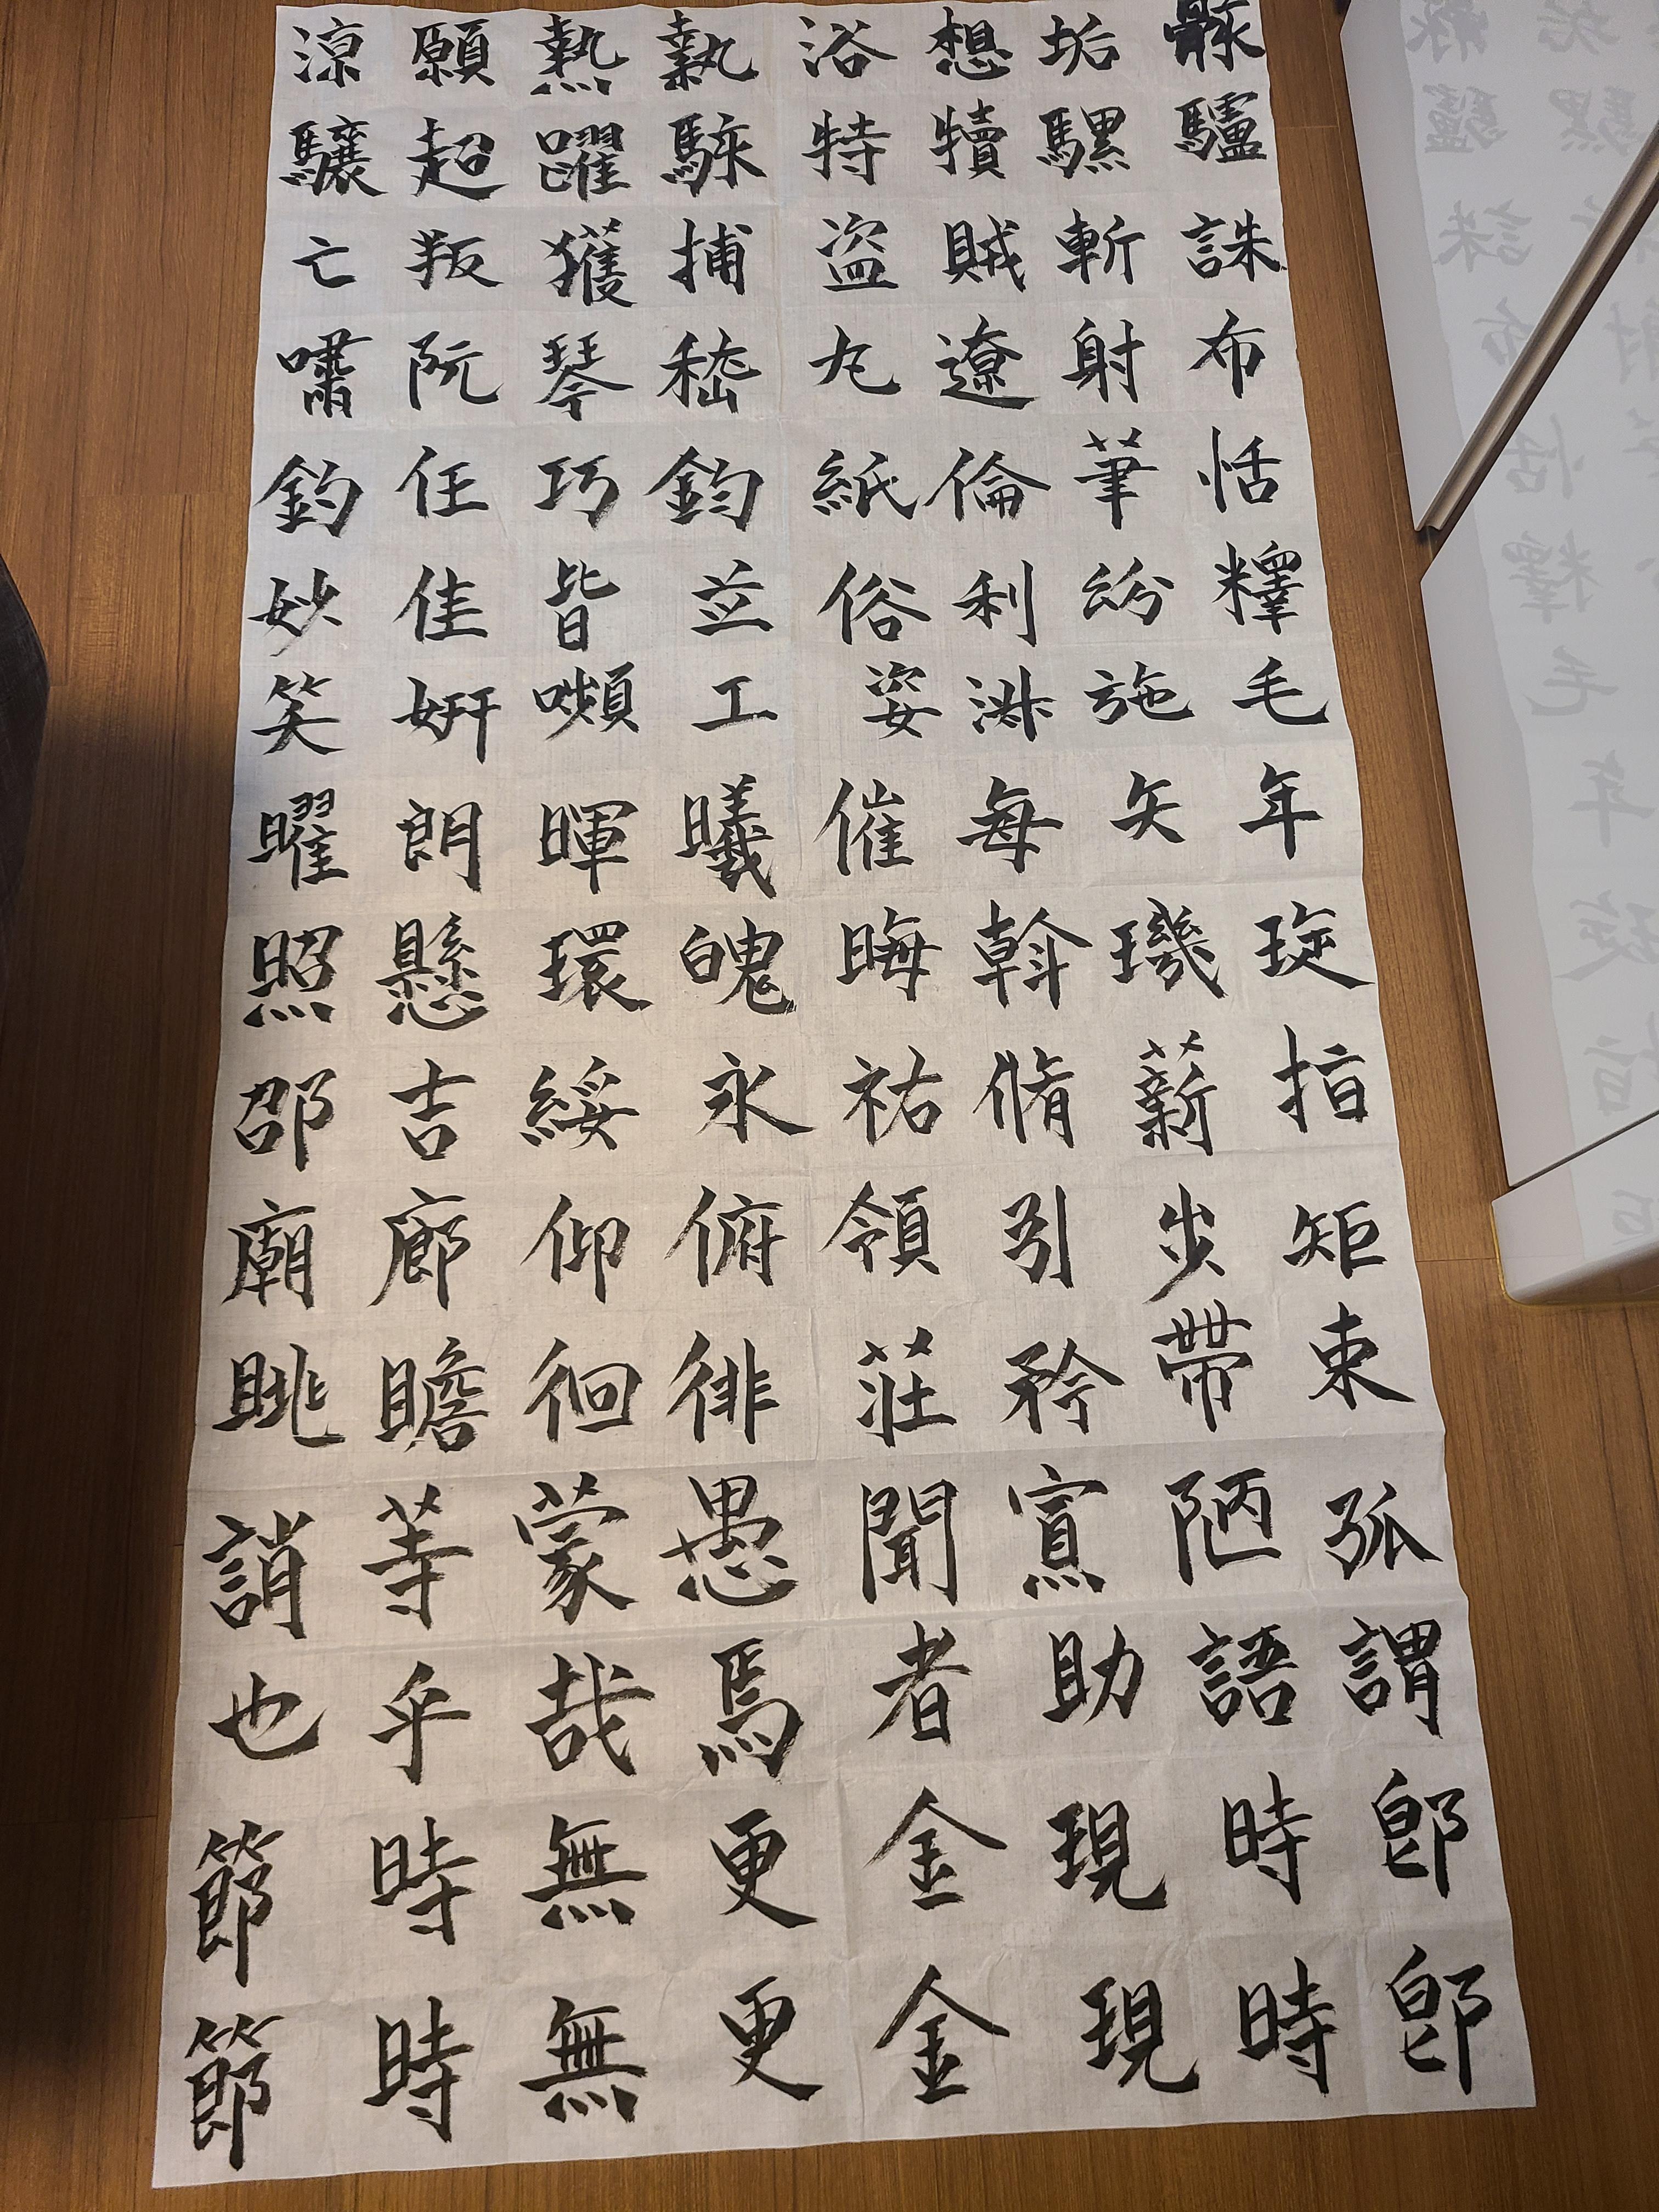 骸垢想浴執熱願涼
驢騾犢特駭躍超驤
誅斬賊盜捕獲叛亡
布射遼丸嵇琴阮嘯
恬筆倫紙鈞巧任釣
釋紛利俗並皆佳妙
毛施淑姿工嚬姸笑
年矢每催曦暉朗曜
琁璣斡晦魄環懸照
指薪脩祐永綏吉邵
矩步引領俯仰廊廟
束帶矜莊徘徊瞻眺
孤陋寡聞愚蒙等誚
謂語助者焉哉乎也
卽時現金更無時節
卽時現金更無時節